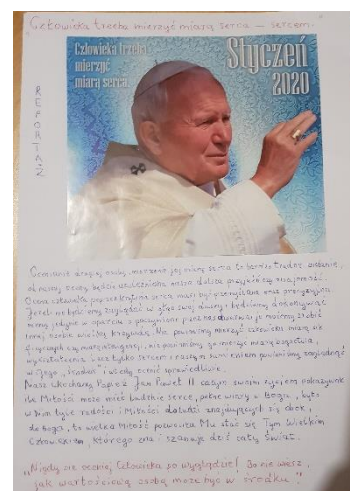 "Człowieka trzeba mierzyć miarą serca — sercem."
Człowieka trzeba
mierzyć
miarą serca.
Styczeń
2020
REPORTAŻ
Ocenianie drugiej osoby, mierzenie jej miarą serca to bardzo trudne zadanie,
od naszej oceny będzie uzależniona nasza dalsza przyszłość znajomość.
Ocena człowieka poprzez kryteria serca musi być przemyślana oraz precyzyjna.
Jeżeli nie będziemy zaglądać w głąb swej duszy i będziemy dokonywać
oceny jedynie w oparciu o powierzchowne możemy zrobić
innej osobie wielką krzywdę. Nie powinno się mierzyć człowieka miarą sił
fizycznych czy materialnych, nie powinniśmy go mierzyć miarą
wykształcenia, lecz tylko sercem i naszym sumieniem powinniśmy zaglądnąć
w Jego "środka" i wtedy ocenić sprawiedliwie.
Nasz ukochany Papież Jan Paweł II całym swoim życiem pokazywał
ile Miłości może mieć ludzkie serce, pełne wiary w Boga, było
w Nim tyle radości i Miłości do ludzi znajdujących się obok,
do Boga, to wielka miłość pozwoliła Mu stać się Tym Wielkim
Człowiekiem, którego zna i szanuje dziś cały Świat.
"Nigdy nie oceniaj Człowieka po wyglądzie! Bo nie wiesz,
jak wartościową osobą może być w środku".